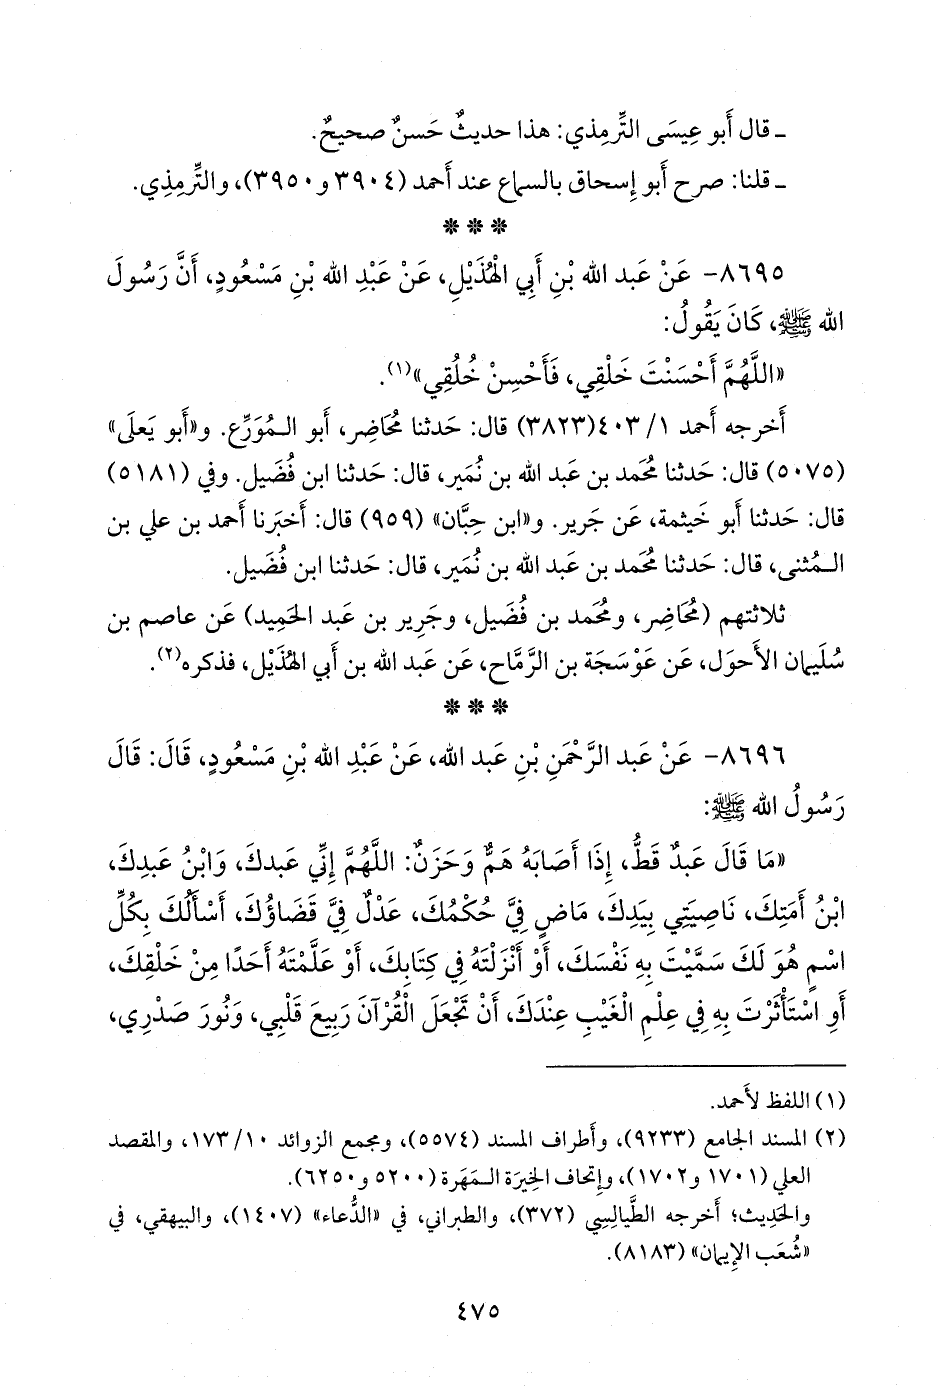 ـ قال أَبو عِيسَى التِّرمِذي: هذا حديثٌ حَسنٌ صحيحٌ.
ـ قلنا: صرح أَبو إِسحاق بالسماع عند أَحمد (٣٩٠٤ و٣٩٥٠)، والتِّرمِذي.
* * *
٨٦٩٥- عَنْ عَبد الله بْنِ أَبِي الْهُذَيْلِ، عَنْ عَبْدِ الله بْنِ مَسْعُودٍ، أَنَّ رَسُولَ
الله ﷺ، كَانَ يَقُولُ:
«اللَّهُمَّ أَحْسَنْتَ خَلْقِي، فَأَحْسِنْ خُلُقِي»(١).
أَخرجه أَحمد ١/ ٤٠٣(٣٨٢٣) قال: حَدثنا مُحَاضِر، أَبو الـمُوَرِّع. و«أَبو يَعلَى»
(٥٠٧٥) قال: حَدثنا مُحمد بن عَبد الله بن نُمَير، قال: حَدثنا ابن فُضَيل. وفي (٥١٨١)
قال: حَدثنا أَبو خَيثمة، عَن جَرير. و«ابن حِبَّان» (٩٥٩) قال: أَخبَرنا أَحمد بن علي بن
الـمُثنى، قال: حَدثنا مُحمد بن عَبد الله بن نُمَير، قال: حَدثنا ابن فُضَيل.
ثلاثتهم (مُحَاضِر، ومُحمد بن فُضَيل، وجَرِير بن عَبد الحَمِيد) عَن عاصم بن
سُلَيمان الأَحوَل، عَن عَوْسَجَة بن الرَّمَّاح، عَن عَبد الله بن أَبي الهُذَيْل، فذكره(٢).
* * *
٨٦٩٦- عَنْ عَبد الرَّحْمَنِ بْنِ عَبد الله، عَنْ عَبْدِ الله بْنِ مَسْعُودٍ، قَالَ: قَالَ
رَسُولُ الله ﷺ:
«مَا قَالَ عَبدٌ قَطُّ، إِذَا أَصَابَهُ هَمٌّ وَحَزَنٌ: اللَّهُمَّ إِنِّي عَبدكَ، وَابْنُ عَبدِكَ،
ابْنُ أَمَتِكَ، نَاصِيَتِي بِيَدِكَ، مَاضٍ فِيَّ حُكْمُكَ، عَدْلٌ فِيَّ قَضَاؤُكَ، أَسْأَلُكَ بِكُلِّ
اسْمٍ هُوَ لَكَ سَمَّيْتَ بِهِ نَفْسَكَ، أَوْ أَنْزَلْتَهُ فِي كِتَابِكَ، أَوْ عَلَّمْتَهُ أَحَدًا مِنْ خَلْقِكَ،
أَوِ اسْتَأْثَرْتَ بِهِ فِي عِلْمِ الْغَيْبِ عِنْدَكَ، أَنْ تَجْعَلَ الْقُرْآنَ رَبِيعَ قَلْبِي، وَنُورَ صَدْرِي،
(١) اللفظ لأَحمد.
(٢) المسند الجامع (٩٢٣٣)، وأَطراف المسند (٥٥٧٤)، ومجمع الزوائد ١٠/ ١٧٣، والمقصد
العلي (١٧٠١ و١٧٠٢)، وإِتحاف الخِيرَة الـمَهَرة (٥٢٠٠ و٦٢٥٠).
والحَدِيث؛ أَخرجه الطَّيالِسي (٣٧٢)، والطبراني، في «الدُّعاء» (١٤٠٧)، والبيهقي، في
«شُعَب الإِيمان» (٨١٨٣).
٤٧٥